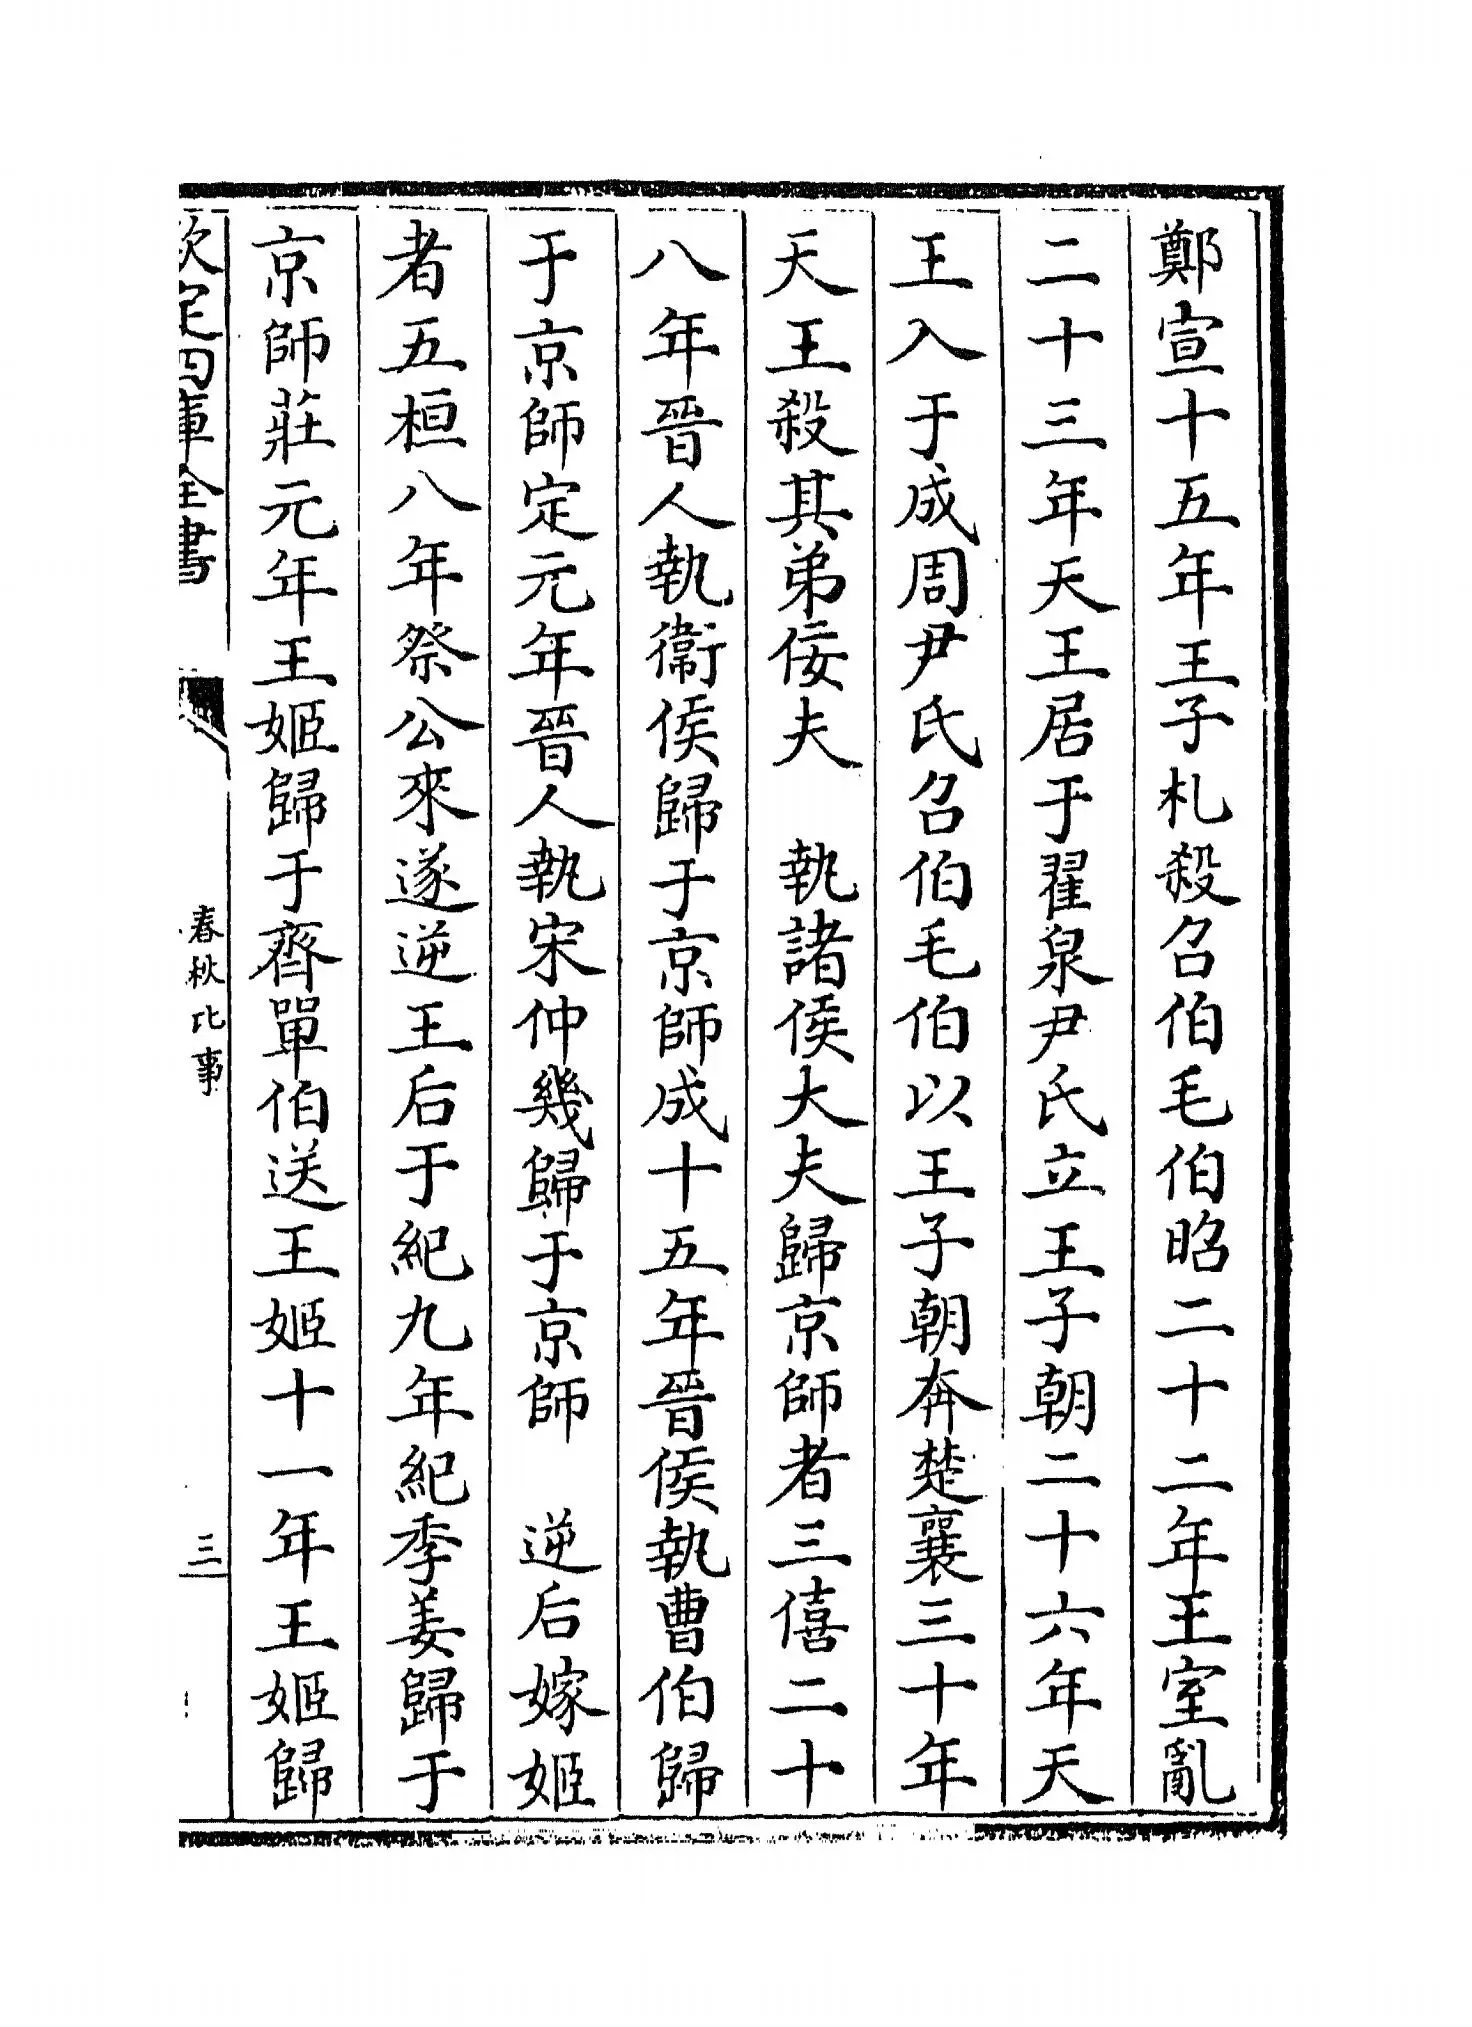 鄭宣十五年王子札殺召伯毛伯昭二十二年王室亂
二十三年天王居于翟泉尹氏立王子朝二十六年天
王入于成周尹氏召伯毛伯以王子朝奔楚襄三十年
天王殺其弟佞夫　執諸侯大夫歸京師者三僖二十
八年晉人執衞侯歸于京師成十五年晉侯執曹伯歸
于京師定元年晉人執宋仲幾歸于京師　逆后嫁姬
者五桓八年祭公來遂逆王后于紀九年紀季姜歸于
京師莊元年王姬歸于齊單伯送王姬十一年王姬歸
欽定四庫全書　春秋比事　三